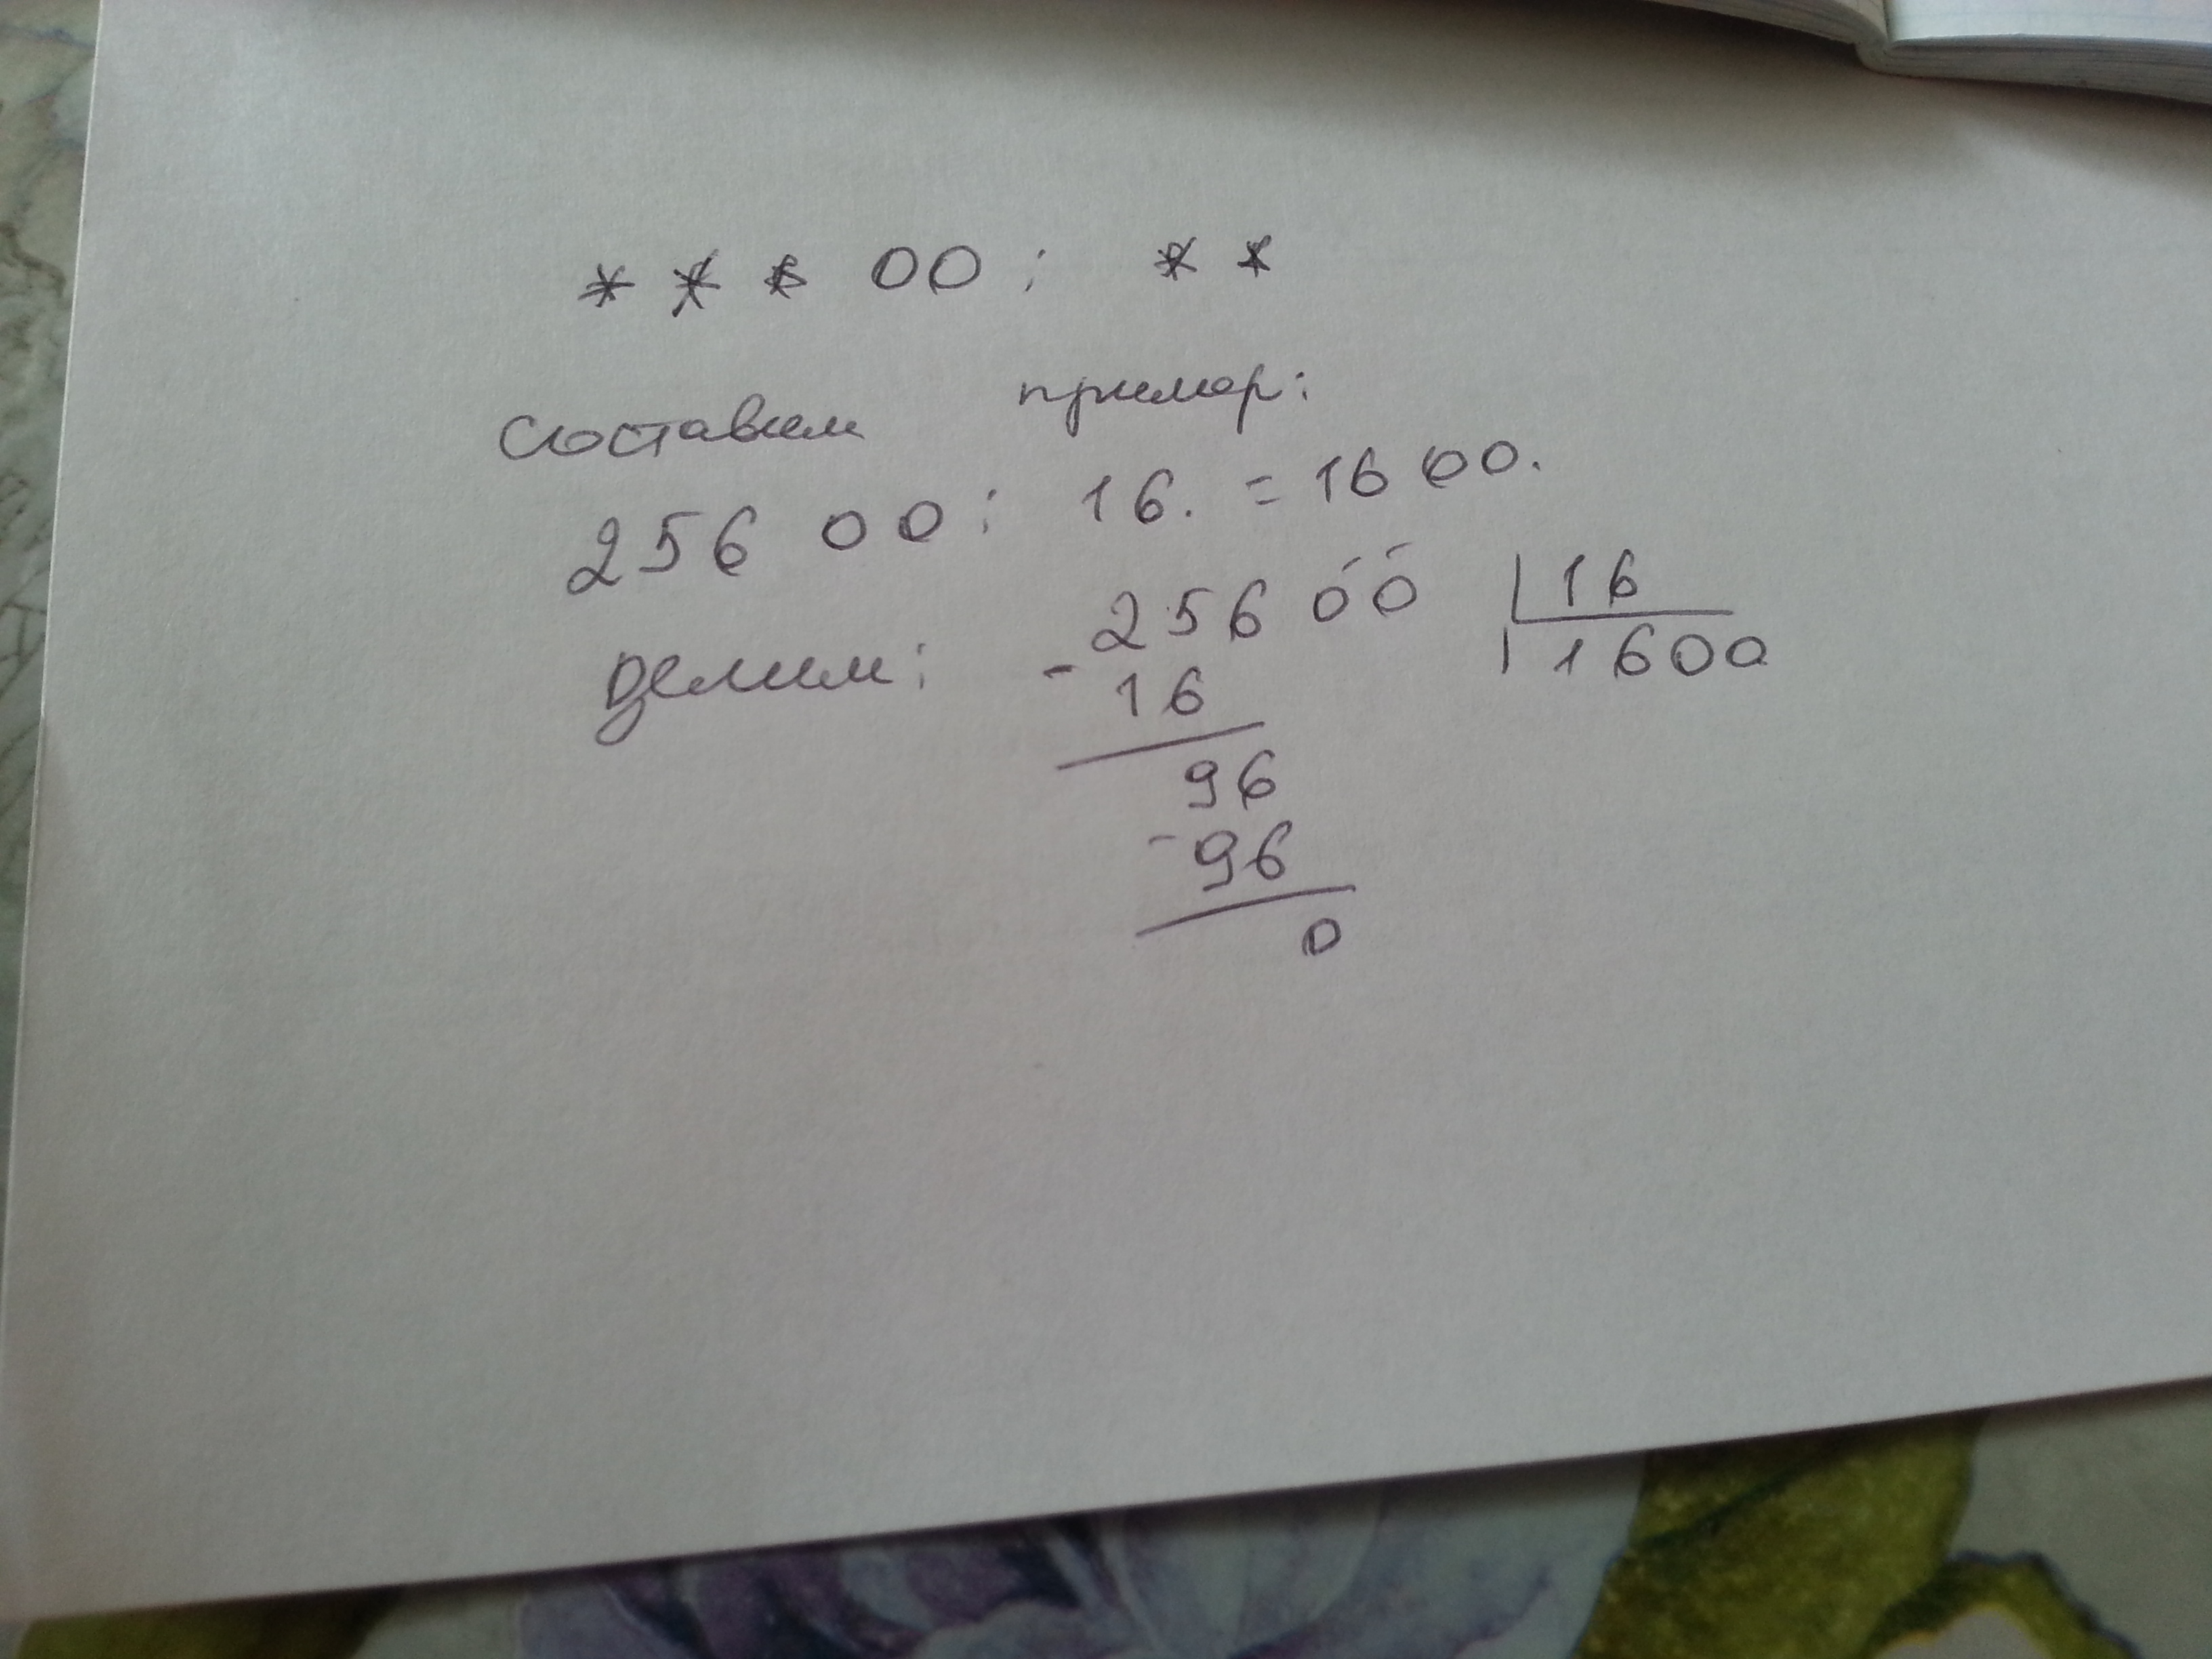 * * * 00 : * *
Составим пример:
256 00 : 16. = 1600.
Делим: - 256 00 | 16
16 | 1600
96
- 96
0